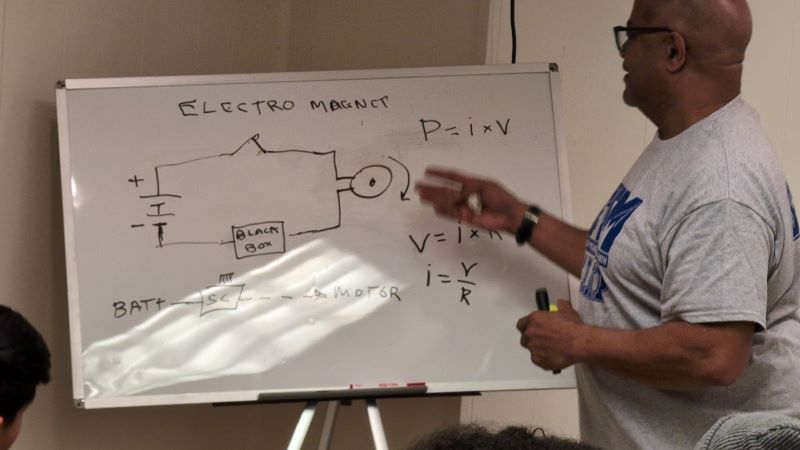 ELECTRO MAGNET
P = i × V
+
-
BLACK
BOX
V = i × R
i = V/R
BATT
SC
MOTOR